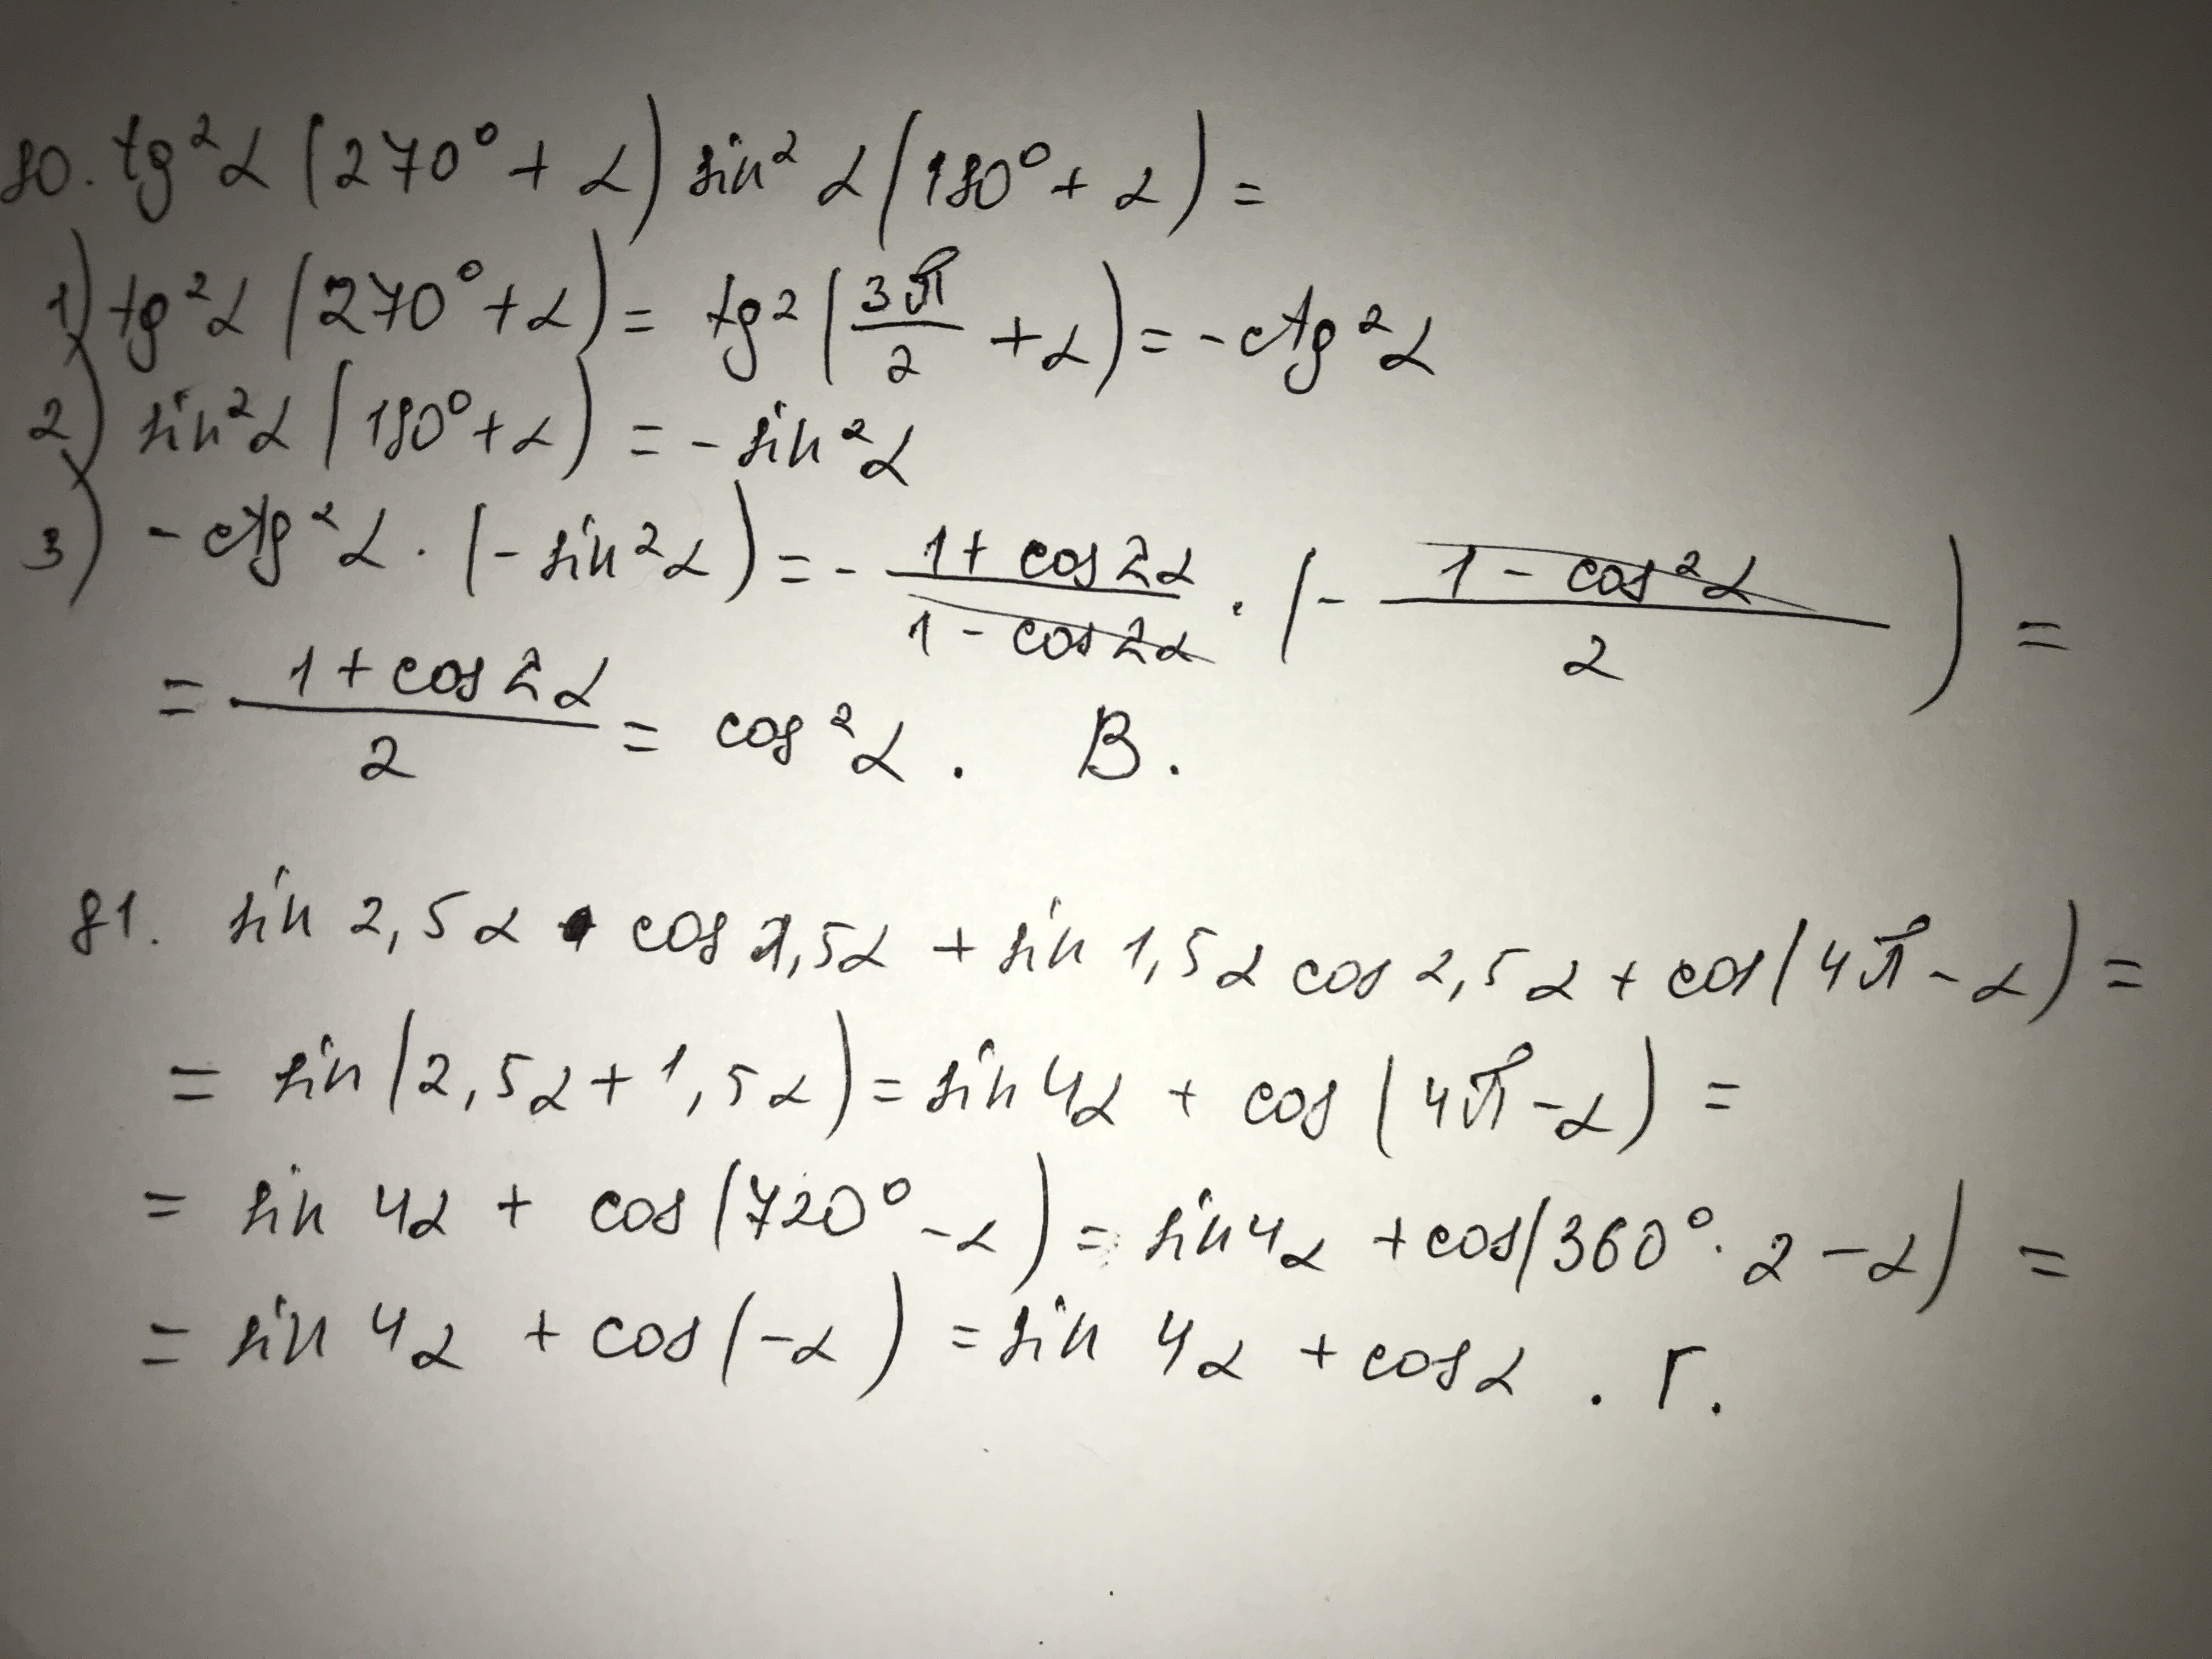 80. tg²α (270° + α) sin² α (180° + α) =
1) tg²α (270° + α) = tg² (3π/2 + α) = - ctg²α
2) sin²α (180° + α) = - sin²α
3) - ctg²α · (- sin²α) = - (1 + cos2α)/(1 - cos2α) · (- (1 - cos²α)/2) =
= (1 + cos2α)/2 = cos²α. В.
81. sin 2,5α · cos 1,5α + sin 1,5α cos 2,5α + cos(4π - α) =
= sin(2,5α + 1,5α) = sin4α + cos (4π - α) =
= sin 4α + cos(720° - α) = sin4α + cos(360° · 2 - α) =
= sin 4α + cos(-α) = sin 4α + cosα . Г.